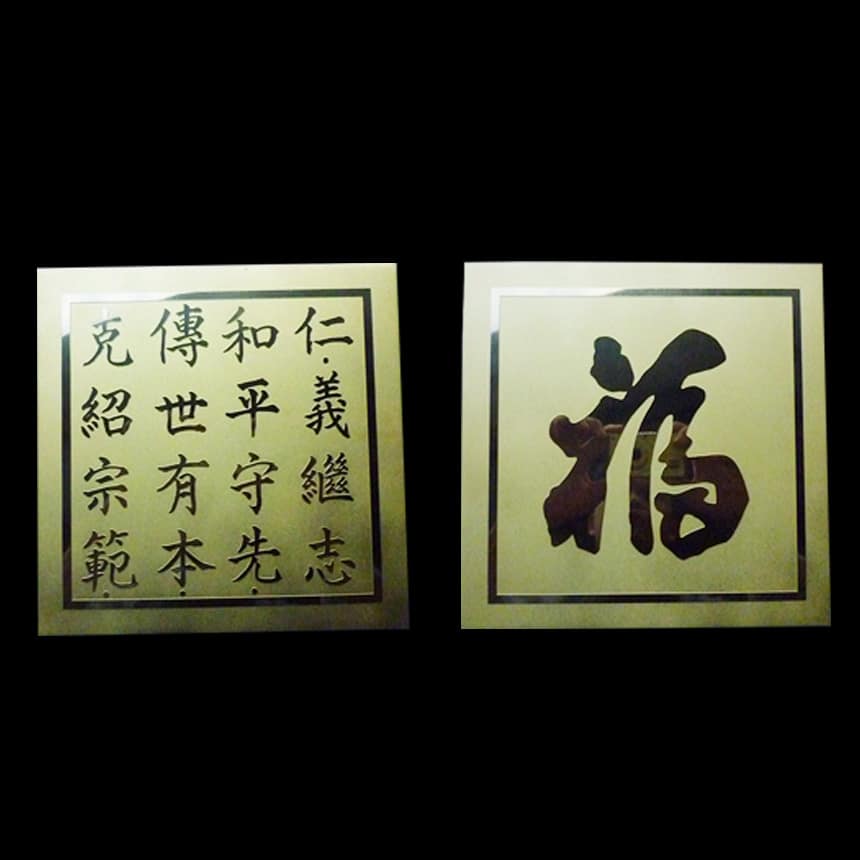 仁義繼志
和平守先
傳世有本
克紹宗範
福